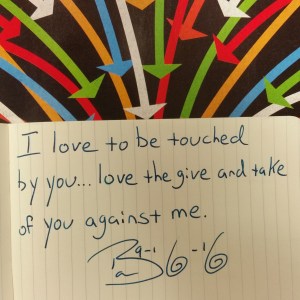 I love to be touched
by you... love the give and take
of you against me.